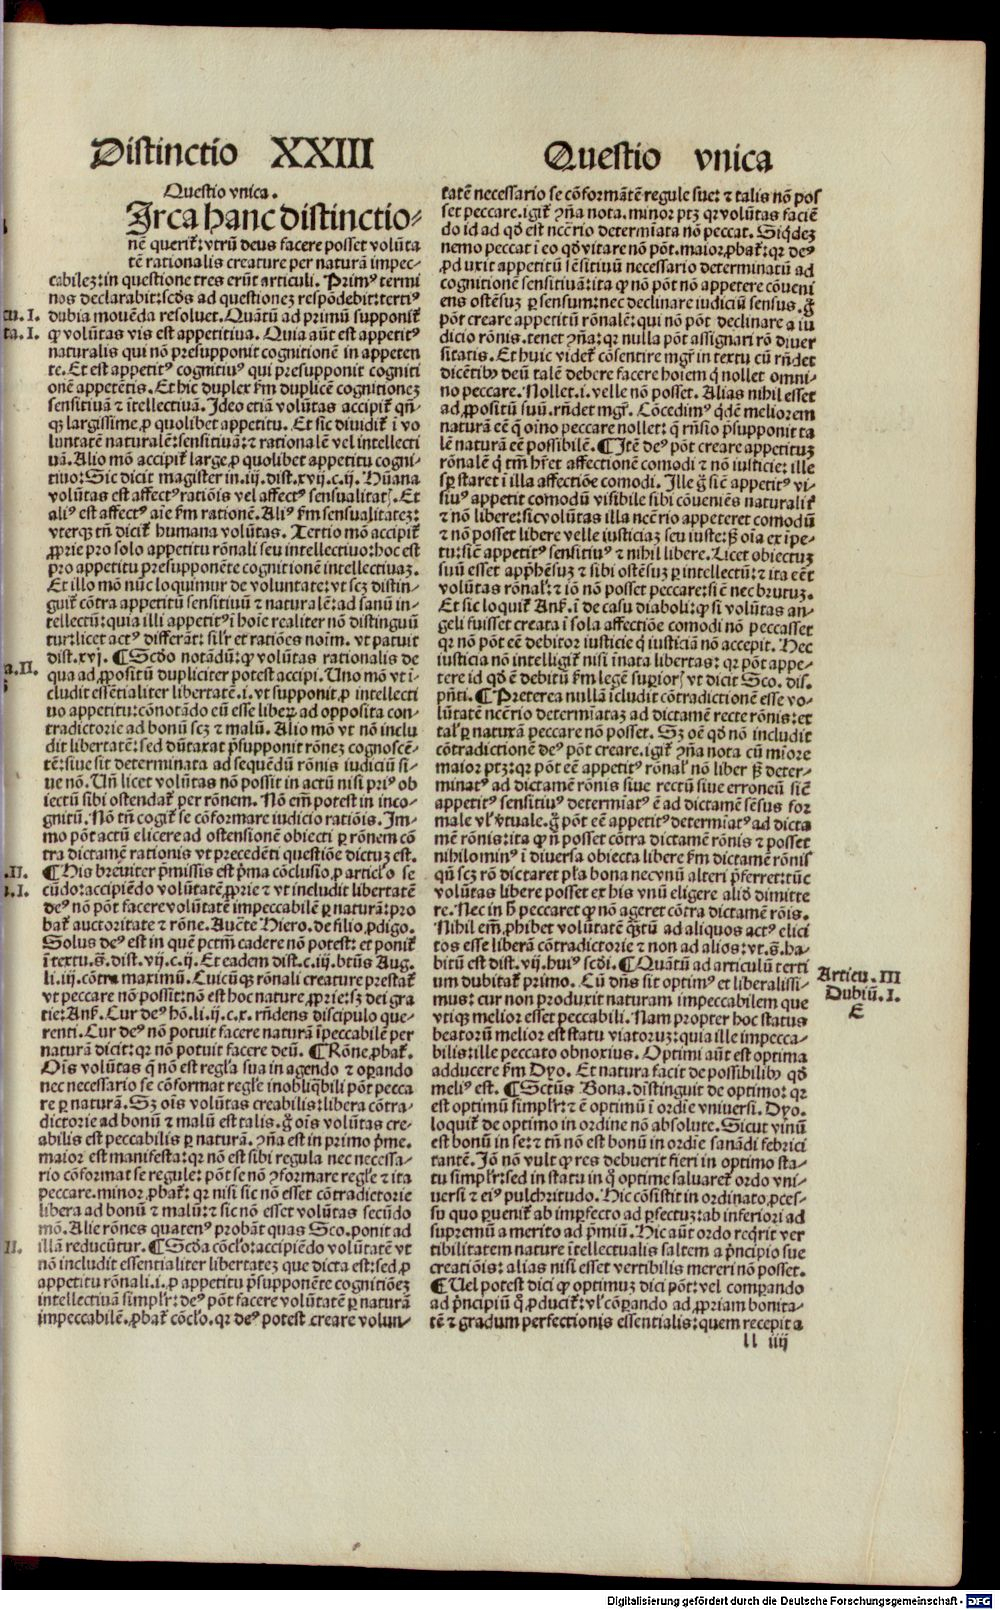 Distinctio XXIII
Questio vnica
Questio vnica.
Irca hanc distinctio-
nē querit᷑: vtrū deus facere posset volūta
tē rationalis creature per naturā impec-
cabilez: in questione tres erūt articuli. Primꝰ termi
nos declarabit: scd̄s ad questionez respōdebit: tertiꝰ
dubia mouēda resoluet. Quātū ad primū supponit᷑
ꝙ volūtas vis est appetitiua. Quia aūt est appetitꝰ
naturalis qui nō presupponit cognitionē in appeten
te. Et est appetitꝰ cognitiuꝰ qui presupponit cogniti
onē appetētis. Et hic duplex ẜm duplicē cognitionez
sensitiuā ⁊ ītellectiuā. Ideo etiā volūtas accipit᷑ qn̄-
qꝫ largissime ꝓ quolibet appetitu. Et sic diuidit᷑ ī vo
luntatē naturalē: sensitiuā: ⁊ rationalē vel intellecti
uā. Alio mō accipit᷑ large ꝓ quolibet appetitu cogni-
tiuo: Sic dicit magister in .iij. dist. xvij. c. ij. Hūana
volūtas est affectꝰ ratiōis vel affectꝰ sensualitat᷑. Et
aliꝰ est affectꝰ aīe ẜm rationē. Aliꝰ ẜm sensualitatez:
vterqꝫ tn̄ dicit᷑ humana volūtas. Tertio mō accipit᷑
ꝓprie pro solo appetitu rōnali seu intellectiuo: hoc est
pro appetitu presupponēte cognitionē intellectiuaz.
Et illo mō nūc loquimur de voluntate: vt scz distin-
guit᷑ cōtra appetitū sensitiuū ⁊ naturalē: ad sanū in-
tellectū: quia illi appetitꝰ ī hoīe realiter nō distinguū
tur: licet actꝰ differāt: silr̄ et ratiōes noīm. vt patuit
dist. xvj. ¶ Scd̄o notādū: ꝙ volūtas rationalis de
qua ad ꝓpositū dupliciter potest accipi. Uno mō vt ī-
cludit essētialiter libertatē .i. vt supponit ꝓ intellecti
uo appetitu: cōnotādo eū esse liberꝫ ad opposita con-
tradictorie ad bonū scz ⁊ malū. Alio mō vt nō inclu
dit libertatē: sed dūtaxat p̄supponit rōnez cognoscē-
tē: siue sit determinata ad sequēdū rōnis iudiciū si-
ue nō. Un̄ licet volūtas nō possit in actū nisi priꝰ ob
iectū sibi ostendat᷑ per rōnem. Nō em̄ potest in inco-
gnitū. Nō tn̄ cogit᷑ se cōformare iudicio ratiōis. Im-
mo pōt actū elicere ad ostensionē obiecti ꝑ rōnem cō
tra dictamē rationis vt precedēti questiōe dictuz est.
¶ His breuiter p̄missis est p̄ma cōclusio, ꝓ articlo se
cūdo: accipiēdo volūtatē ꝓprie ⁊ vt includit libertatē
deꝰ nō pōt facere volūtatē impeccabilē ꝑ naturā: pro
bat᷑ auctoritate ⁊ rōne. Auēte Hiero. de filio ꝓdigo.
Solus deꝰ est in quē pctm̄ cadere nō potest: et ponit᷑
ī textu .s. dist. vij. c. ij. Et eadem dist. c. iij. btūs Aug.
li. iij. cōtra maximū. Cuicūqꝫ rōnali creature prestat᷑
vt peccare nō possit: nō est hoc nature ꝓprie: sꝫ dei gra
tie: Anẜ. Cur deꝰ hō. li. ij. c. x. rn̄dens discipulo que-
renti. Cur deꝰ nō potuit facere naturā īpeccabilē per
naturā dicit: qr nō potuit facere deū. ¶ Rōne ꝓbat᷑.
Oīs volūtas q̄ nō est regl̄a sua in agendo ⁊ oꝑando
nec necessario se cōformat regl̄e inobliq̄bili pōt pecca
re ꝑ naturā. Sꝫ oīs volūtas creabilis: libera cōtra-
dictorie ad bonū ⁊ malū est talis. g̊ oīs volūtas cre-
abilis est peccabilis ꝑ naturā. ꝯn̄a est in primo p̄me.
maior est manifesta: qr nō est sibi regula nec necessa-
rio cōformat se regule: pōt se nō ꝯformare regl̄e ⁊ ita
peccare. minor ꝓbat᷑: qr nisi sic nō esset cōtradictorie
libera ad bonū ⁊ malū: ⁊ sic nō esset volūtas secūdo
mō. Alie rōnes quatenꝰ probāt quas Sco. ponit ad
illā reducūtur. ¶ Scd̄a cōclō: accipiēdo volūtatē vt
nō includit essentialiter libertatez que dicta est: sed ꝓ
appetitu rōnali .i. ꝓ appetitu p̄supponēte cognitiōez
intellectiuā simplr̄: deꝰ pōt facere volūtatē ꝑ naturā
impeccabilē. ꝓbat᷑ cōclō. qr deꝰ potest creare volun-
tatē necessario se cōformātē regule sue: ⁊ talis nō pos
set peccare. igit᷑ ꝯn̄a nota. minor ptꝫ qr volūtas faciē
do id ad qd̄ est ncc̄rio determīata nō peccat. Siq̄dez
nemo peccat ī eo qd̄ vitare nō pōt. maior ꝓbat᷑: qr deꝰ
ꝓduxit appetitū sēsitiuū necessario determinatū ad
cognitionē sensitiuā: ita ꝙ nō pōt nō appetere cōueni
ens ostēsuz ꝑ sensum: nec declinare iudiciū sensus. g̊
pōt creare appetitū rōnalē: qui nō pōt declinare a iu
dicio rōnis. tenet ꝯn̄a: qr nulla pōt assignari rō diuer
sitatis. Et huic videt᷑ cōsentire mgr̄ in textu cū rn̄det
dicētibꝰ deū talē debere facere hoīem q̄ nollet omni-
no peccare. Nollet .i. velle nō posset. Alias nihil esset
ad ꝓpositū suū. rn̄det mgr̄. Cōcedimꝰ q̄dē meliorem
naturā eē q̄ oīno peccare nollet: q̄ rn̄sio p̄supponit ta
lē naturā eē possibilē. ¶ Itē deꝰ pōt creare appetituz
rōnalē q̄ tm̄ hr̄et affectionē comodi ⁊ nō iusticie: ille
sꝑ staret ī illa affectiōe comodi. Ille g̊ siē appetitꝰ vi-
siuꝰ appetit comodū visibile sibi cōueniēs naturalit᷑
⁊ nō libere: sic volūtas illa ncc̄rio appeteret comodū
⁊ nō posset libere velle iusticiaz seu iuste: sꝫ oīa ex īpe-
tu: siē appetitꝰ sensitiuꝰ ⁊ nihil libere. Licet obiectuz
suū esset app̄hēsuz ⁊ sibi ostēsuz ꝑ intellectū: ⁊ ita eēt
volūtas rōnal᷑: ⁊ iō nō posset peccare: si ē nec brutuz.
Et sic loquit᷑ Anẜ. ī de casu diaboli: ꝙ si volūtas an-
geli fuisset creata ī sola affectiōe comodi nō peccasset
qr nō pōt eē debitor iusticie q̄ iusticiā nō accepit. Hec
iusticia nō intelligit᷑ nisi īnata libertas: qr pōt appe-
tere id qd̄ ē debitū ẜm legē superior᷑ vt dicit Sco. dis.
pn̄ti. ¶ Preterea nullā īcludit cōtradictionē esse vo-
lūtatē ncc̄rio determīataz ad dictamē recte rōnis: et
tal᷑ ꝑ naturā peccare nō posset. Sꝫ oē qd̄ nō includit
cōtradictionē deꝰ pōt creare. igit᷑ ꝯn̄a nota cū mīore
maior ptꝫ: qr pōt eē appetitꝰ rōnal᷑ nō liber sꝫ deter-
minatꝰ ad dictamē rōnis siue rectū siue erroneū siē
appetitꝰ sensitiuꝰ determīatꝰ ē ad dictamē sēsus for
male vl᷑ v̓tuale. g̊ pōt eē appetitꝰ determīatꝰ ad dicta
mē rōnis: ita ꝙ nō posset cōtra dictamē rōnis ⁊ posset
nihilominꝰ ī diuersa obiecta libere ẜm dictamē rōnis
qn̄ scz rō dictaret pl̄a bona necvnū alteri p̄ferret: tūc
volūtas libere posset ex his vnū eligere aliō dimitte
re. Nec in h̄ peccaret ꝙ nō ageret cōtra dictamē rōis.
Nihil em̄ ꝓhibet voluntatē q̄tū ad aliquos actꝰ elici
tos esse liberā cōtradictorie ⁊ non ad alios: vt .s. ha-
bitū est dist. vij. huiꝰ scd̄i. ¶ Quātū ad articulū terti
um dubitat᷑ primo. Cū dn̄s sit optimꝰ et liberalissi-
mus: cur non produxit naturam impeccabilem que
vtiqꝫ melior esset peccabili. Nam propter hoc status
beatorū melior est statu viatoruz: quia ille impecca-
bilis: ille peccato obnoxius. Optimi aūt est optima
adducere ẜm Dyo. Et natura facit de possibilibꝰ qd̄
meliꝰ est. ¶ Sctūs Bona. distinguit de optimo: qr
est optimū simplr̄: ⁊ ē optimū ī ordīe vniuersi. Dyo.
loquit᷑ de optimo in ordine nō absolute. Sicut vinū
est bonū in se: ⁊ tn̄ nō est bonū in ordīe sanādi febrici
tantē. Iō nō vult ꝙ res debuerit fieri in optimo sta-
tu simplr̄: sed in statu in q̊ optime saluaret᷑ ordo vni-
uersi ⁊ eiꝰ pulchritudo. Hic cōsistit in ordinato ꝓces-
su quo ꝑuenit᷑ ab imꝑfecto ad ꝑfectuz: ab inferiori ad
supremū a merito ad p̄miū. Hic aūt ordo req̄rit ver
tibilitatem nature ītellectualis saltem a p̄ncipio sue
creatiōis: alias nisi esset vertibilis mereri nō posset.
¶ Uel potest dici ꝙ optimuz dici pōt: vel comparando
ad p̄ncipiū q̊ ꝓducit᷑: vl᷑ cōꝑando ad ꝓpriam bonita-
tē ⁊ gradum perfectionis essentialis: quem recepit a
ll iiij
Articu. III
Dubiū. I.
E